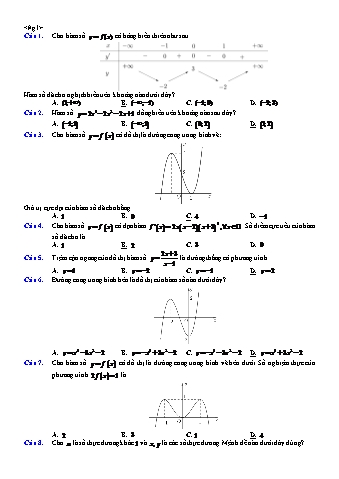 <đề gốc>
Câu 1. Cho hàm số y = f(x) có bảng biến thiên như sau
x −∞ −1 0 1 +∞
y' − 0 + 0 − 0 +
+∞ 3 +∞
−2 −2
Hàm số đã cho nghịch biến trên khoảng nào dưới đây?
A. (1;+∞) B. (−∞;−1) C. (−1;0) D. (−2;3)
Câu 2. Hàm số đồng biến trên khoảng nào sau đây?
Câu 3. Cho hàm số y = f(x) có đồ thị là đường cong trong hình vẽ:
Giá trị cực đại của hàm số đã cho bằng
A. 1 B. 0 C. 4 D. −1
Câu 4. Cho hàm số y = f(x) có đạo hàm Số điểm cực tiểu của hàm
số đã cho là
A. 1 B. 2 C. 3 D. 0
Câu 5. Tiệm cận ngang của đồ thị hàm số là đường thẳng có phương trình
Câu 6. Đường cong trong hình bên là đồ thị của hàm số nào dưới đây?
Câu 7. Cho hàm số y = f(x) có đồ thị là đường cong trong hình vẽ bên dưới. Số nghiệm thực của
phương trình là
A. 2 B. 3 C. 1 D. 4
Câu 8. Cho là số thực dương khác 1 và x, y là các số thực dương. Mệnh đề nào dưới đây đúng?